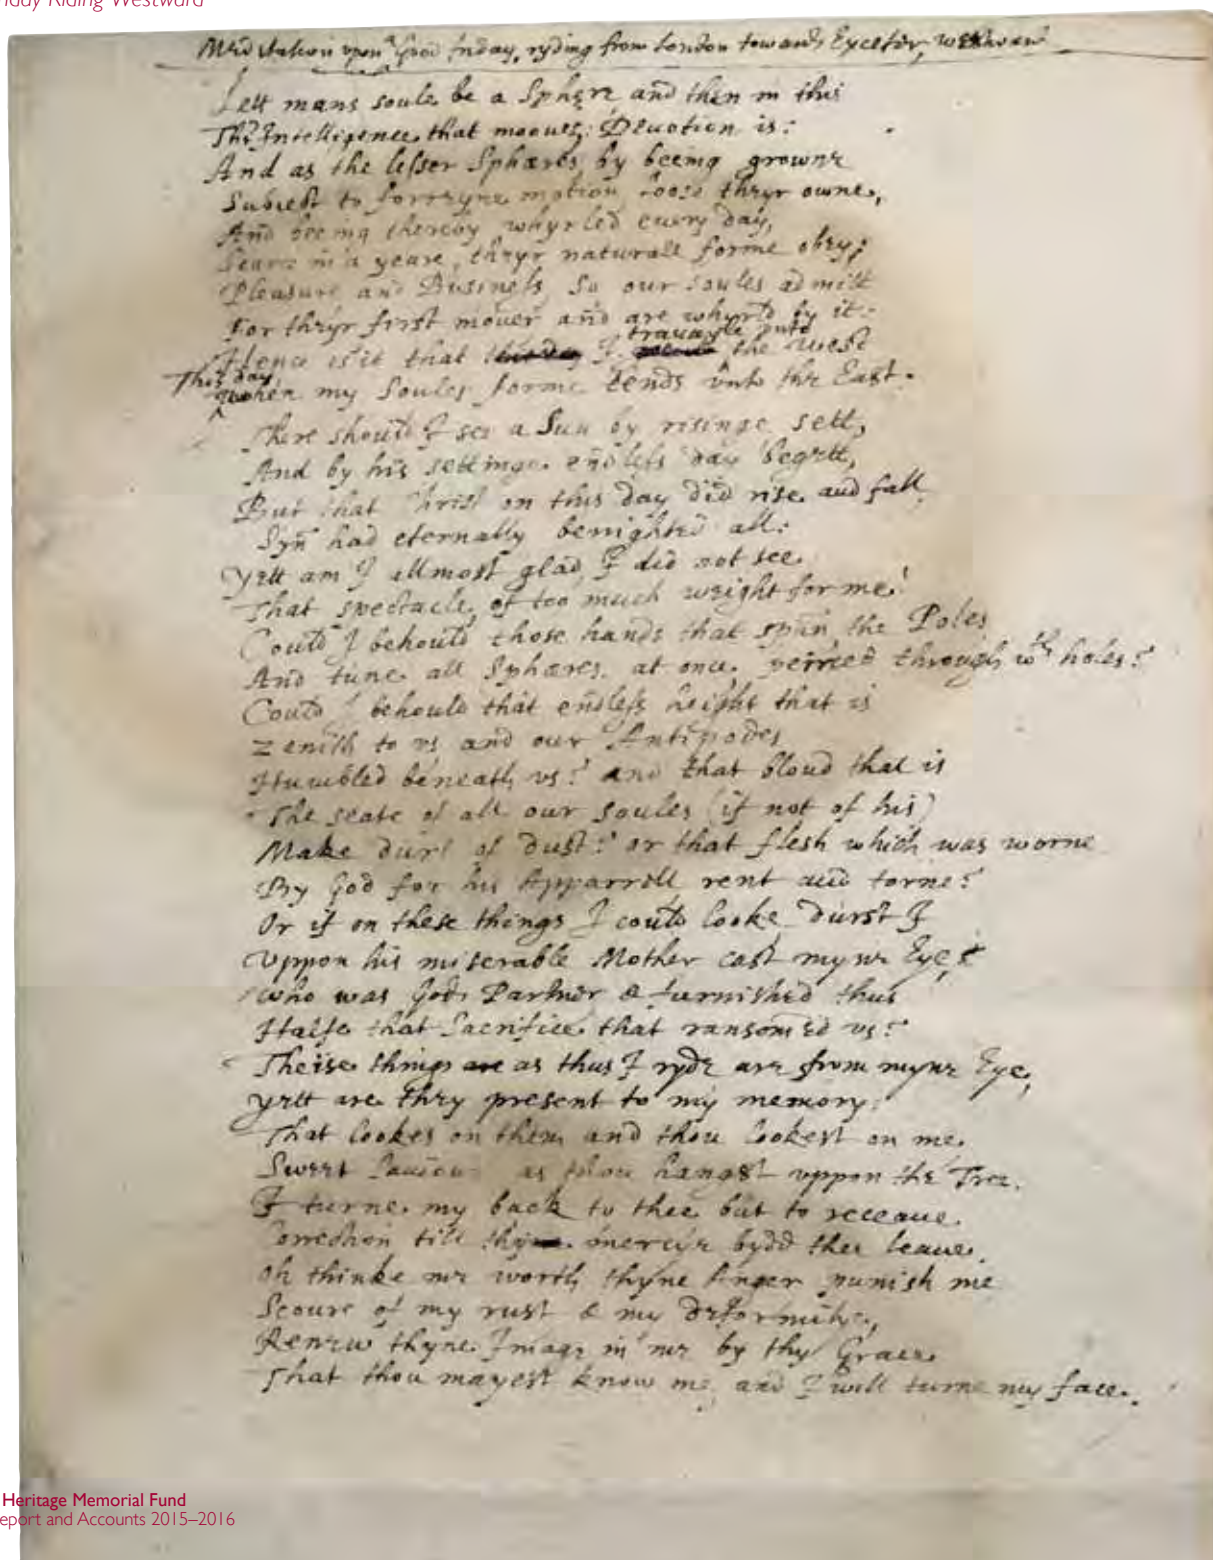 riday Riding Westward
Meditation upon Good friday, ryding from London towards Exceter, westward
Lett mans soule be a Sphere and then in this
Th' Intelligence that mooues; Deuotion is:
And as the lesser Sphæres by beeing growne
Subiect to forreyne motion loose theyr owne,
And beeing thereby whyrled euery day,
Scarce in a yeare, theyr naturall forme obey;
Pleasure and Businefs, So our soules admitt
For theyr first mouer and are whyrld by it:
trauayle into
Hence is it that this day I the west
This day
when my Soules forme tends vnto the East.
There should I see a Sun by risinge sett,
And by his settinge endlefs day begett,
But that Christ on this day did rise and fall
Syn had eternally benighted all:
Yett am I allmost glad, I did not see
That spectacle, of too much weight for me!
Could I behould those hands that span the Poles
And tune all Sphæres, at once peirced through wth holes?
Could I behould that endlefs height that is
Zenith to vs and our Antipodes
Humbled beneath vs? and that bloud that is
The seate of all our soules (if not of his)
Make durt of dust? or that flesh which was worne
By God for his Apparrell rent and torne?
Or if on these things I could looke durst I
Vppon his miserable Mother cast myne Eye,
who was Gods Partner & furnished thus
Halfe that Sacrifice that ransomed vs?
Theise things are as thus I ryde are from myne Eye,
Yett are they present to my memory;
That lookes on them and thou lookest on me
Sweet Sauiour as thou hangst vppon the Tree.
I turne my back to thee but to receaue
Correction till mercye bydd thee leaue.
Oh thinke me worth thyne Anger punish me
Scoure of my rust & my deformitye,
Renew thyne Image in me by thy Grace
That thou mayest know me, and I will turne my face.
Heritage Memorial Fund
eport and Accounts 2015–2016